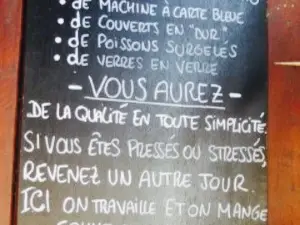 • de MACHINE À CARTE BLEUE
• de COUVERTS EN "DUR"
• de POISSONS SURGELÉS
• de VERRES EN VERRE
- VOUS AUREZ -
DE LA QUALITÉ EN TOUTE SIMPLICITÉ.
SI VOUS ÊTES PRESSÉS OU STRESSÉS,
REVENEZ UN AUTRE JOUR.
ICI ON TRAVAILLE ET ON MANGE